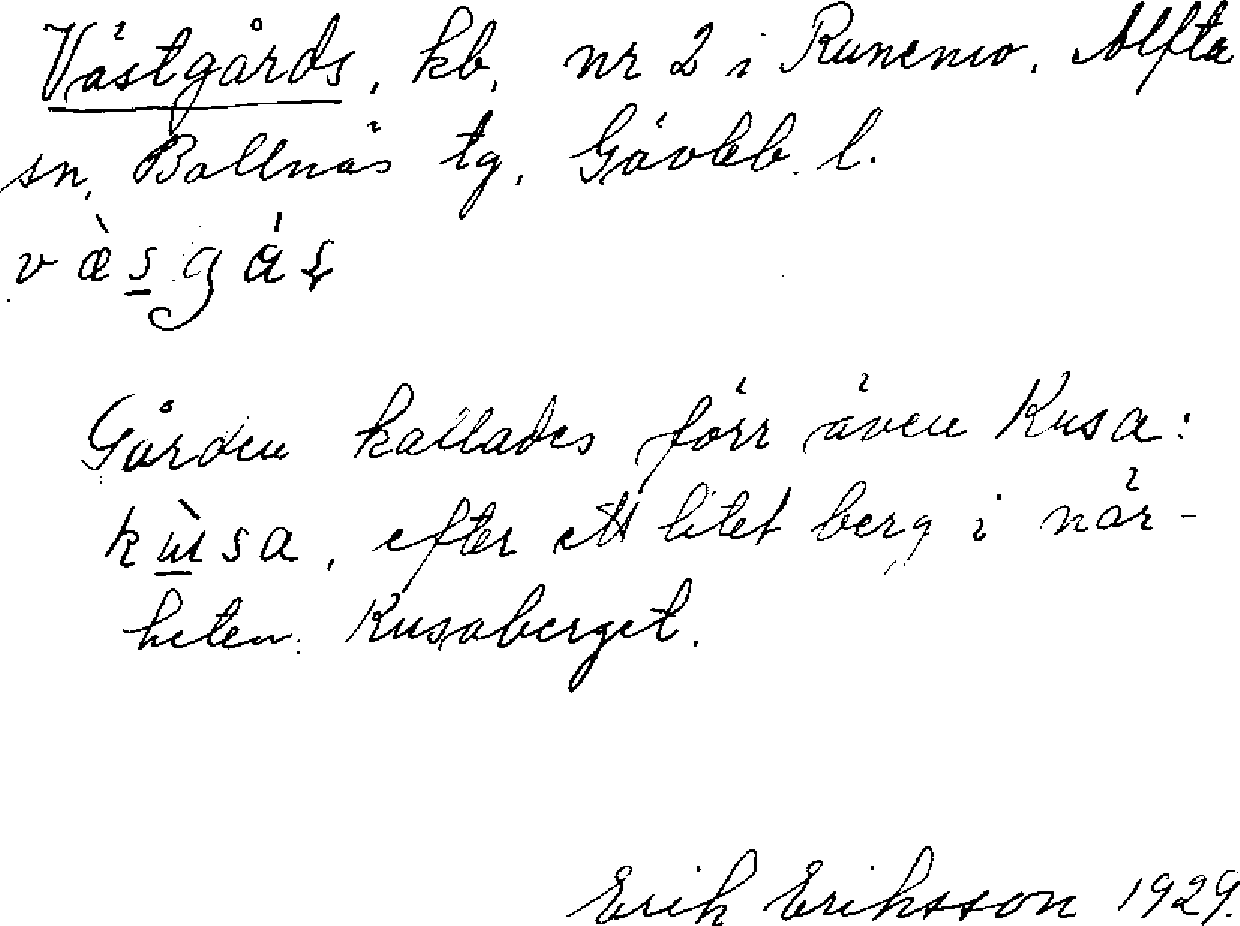 Västgårds, kb, nr 2 i Runemo. Alfta
sn, Bollnäs tg, Gävleb. l.
Gården kallades förr även Kusa:
efter ett litet berg i när-
heten: Kusaberget.
Erik Eriksson 1929.